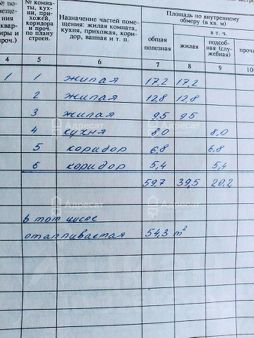 Площадь по внутреннему
обмеру (в кв. м)
в т. ч.
№ комна-
ты, кух-
ни, при-
хожей,
коридора
и проч.
по плану
строен.
Назначение частей поме-
щения: жилая комната,
кухня, прихожая, кори-
дор, ванная и т. п.
общая
полезная
жилая
подсоб-
ная (слу-
жебная)
4 5 6 7 8 9 10
1 1 жилая 17,2 17,2
2 жилая 12,8 12,8
3 жилая 9,5 9,5
4 кухня 8,0 8,0
5 коридор 6,8 6,8
6 коридор 5,4 5,4
59,7 39,5 20,2
в том числе
отапливаемая 54,3 м²
Адресат